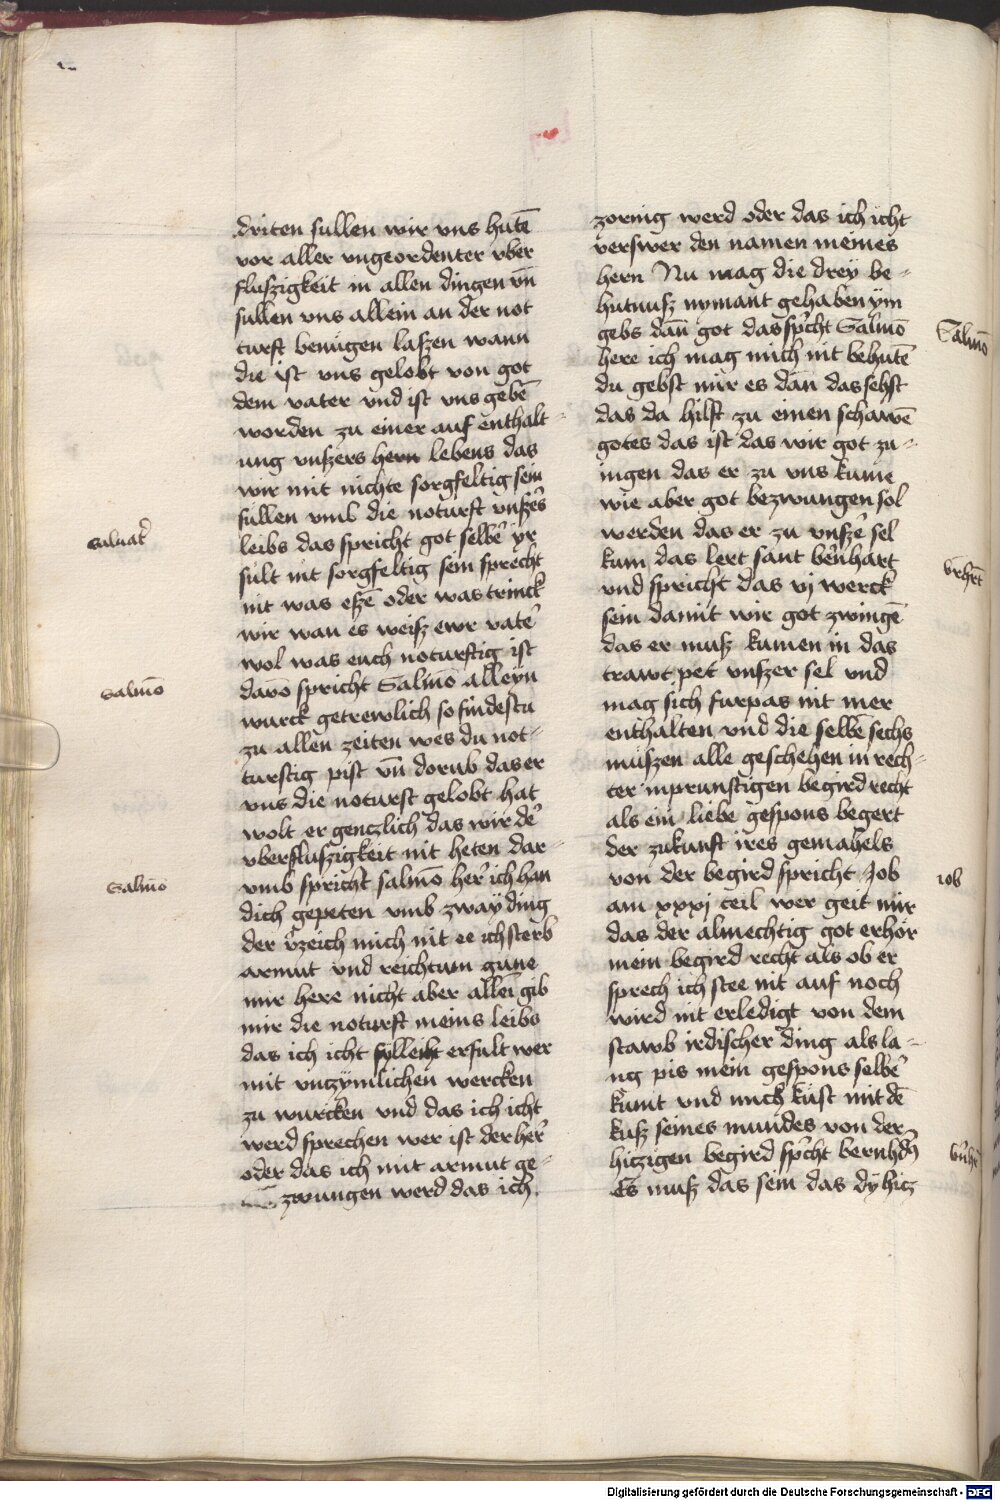 driten sullen wir vns hutē
vor aller vngeordenter vber
fluszigkeit in allen dingen vn̄
sullen vns allein an der not
turft benugen laszen wann
die ist vns gelobt von got
dem vater vnd ist vns gebē
worden zu einer auf enthalt-
ung vnszers hern lebens das
wir mit nichte sorgfeltig sein
sullen vmb die noturft vnsze᷑s
leibs das spricht got selbe᷑ yr
sult nit sorgfeltig sein sprecht
nit was eszē oder was trinck
wir wan es weisz ewr vate᷑
wol was euch noturftig ist
darō spricht Salmō alleyn
wurck getrewlich so findestu
zu allen zeiten wes du not-
turftig pist vn̄ dorub das er
vns die noturft gelobt hat
wolt er genczlich das wir de᷑
vberfluszigkeit nit heten dar-
vmb spricht salmō her᷑ ich han
dich gepeten vmb zway ding
der v᷑zeich mich nit ee ich sterb
armut vnd reichtum gune
mir here nicht aber allei gib
mir die noturft meins leibs
das ich icht erfult wer
mit vnczymlichen wercken
zu wurcken vnd das ich icht
werd sprechen wer ist der her᷑
oder das ich mit armut ge-
zwungen werd das ich
Saluat᷑
Salmō
Salmō
zornig werd oder das ich icht
verswer den namen meines
hern Nu mag die drey be-
hutnusz nymant gehaben ym
gebs dan̄ got das sp᷑cht Salmō
here ich mag mich nit behutē
du gebst mir es dan das selbst
das da hilft zu einen schawē
gotes das ist das wir got zu-
ingen das er zu vns kume
wie aber got bezwungen sol
werden das er zu vnsze᷑ sel
kum das lert sant be᷑nhart
vnd spricht das vj werck
sein damit wir got zwingē
das er musz kumen in das
trawt pet vnszer sel vnd
mag sich furpas nit mer
enthalten vnd die selbē sechs
muszen alle geschehen in rech-
ter inprunstigen begird recht
als ein liebe gespons begert
der zukunft ires gemahels
von der begird spricht Job
am xxxj teil wer geit mir
das der almechtig got erhor
mein begird recht als ob er
sprech ich stee nit auf noch
wird nit erledigt von dem
stawb irdischer ding als la-
ng pis mein gespons selbe᷑
kumt vnd mich kust mit dē
kusz seines mundes von der
hiczigen begird sp᷑cht bernhd᷑
Es musz das sein das dy hicz
Salmō
Job
Digitalisierung gefördert durch die Deutsche Forschungsgemeinschaft - DFG